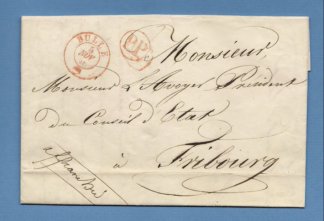 BULLE
P.P.
Monsieur
Monsieur L'Avoyer Président
du Conseil d'Etat
à
Fribourg